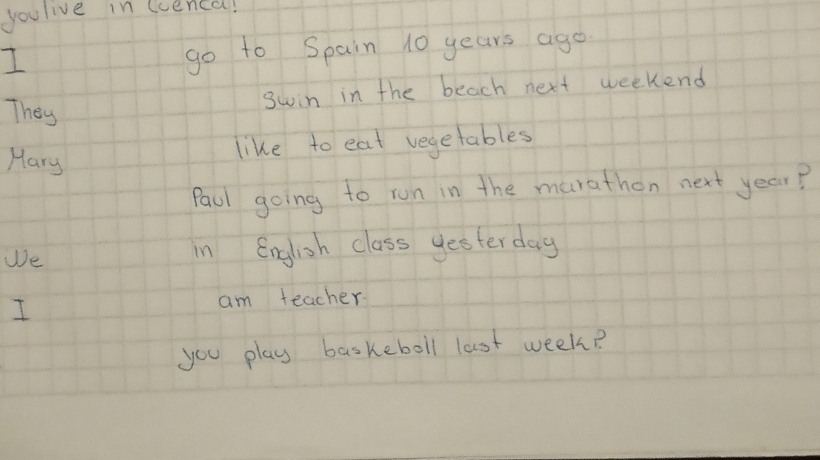 you live in Cuenca?
I go to Spain 10 years ago.
They swin in the beach next weekend
Mary like to eat vegetables
Paul going to run in the marathon next year?
We in English class yesterday
I am teacher.
you play baskeboll last week?